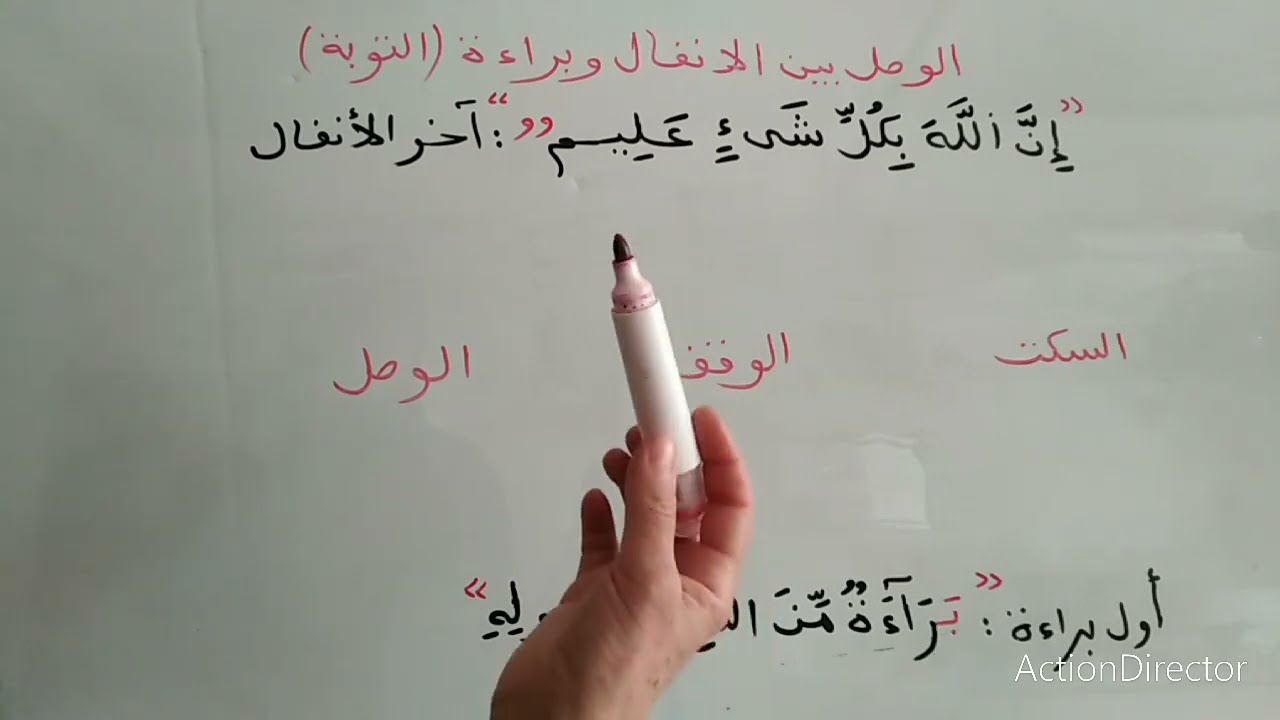 الوصل بين الانفال وبراءة (التوبة)
"إِنَّ ٱللَّهَ بِكُلِّ شَىْءٍ عَلِيم": آخر الأنفال
السكت الوقف الوصل
أول براءة: "بَرَآءَةٌ مِّنَ
ActionDirector